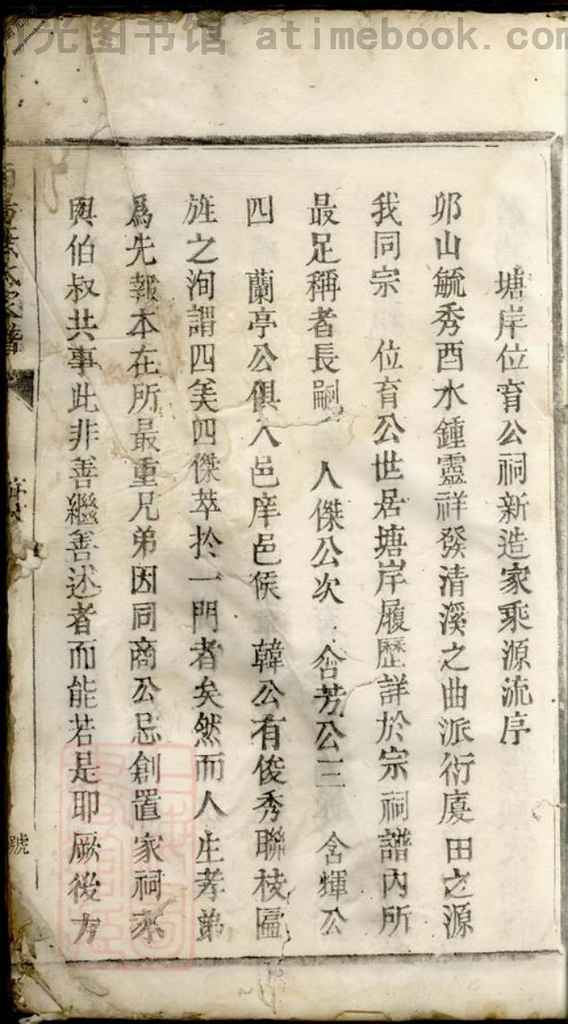 时光图书馆 atimebook.com
塘岸位育公祠新造家乘源流序
卯山毓秀酉水鍾靈祥發清溪之曲派衍廈田之源
我同宗 位育公世居塘岸履歷詳於宗祠譜內所
最足稱者長嗣 人傑公次 含芳公三 含輝公
四 蘭亭公俱入邑庠邑侯 韓公有俊秀聯枝匾
旌之洵謂四美四傑萃於一門者矣然而人生孝弟
為先報本在所最重兄弟因同商公忌創置家祠來
與伯叔共事此非善繼善述者而能若是耶厥後方
葉氏家譜
號